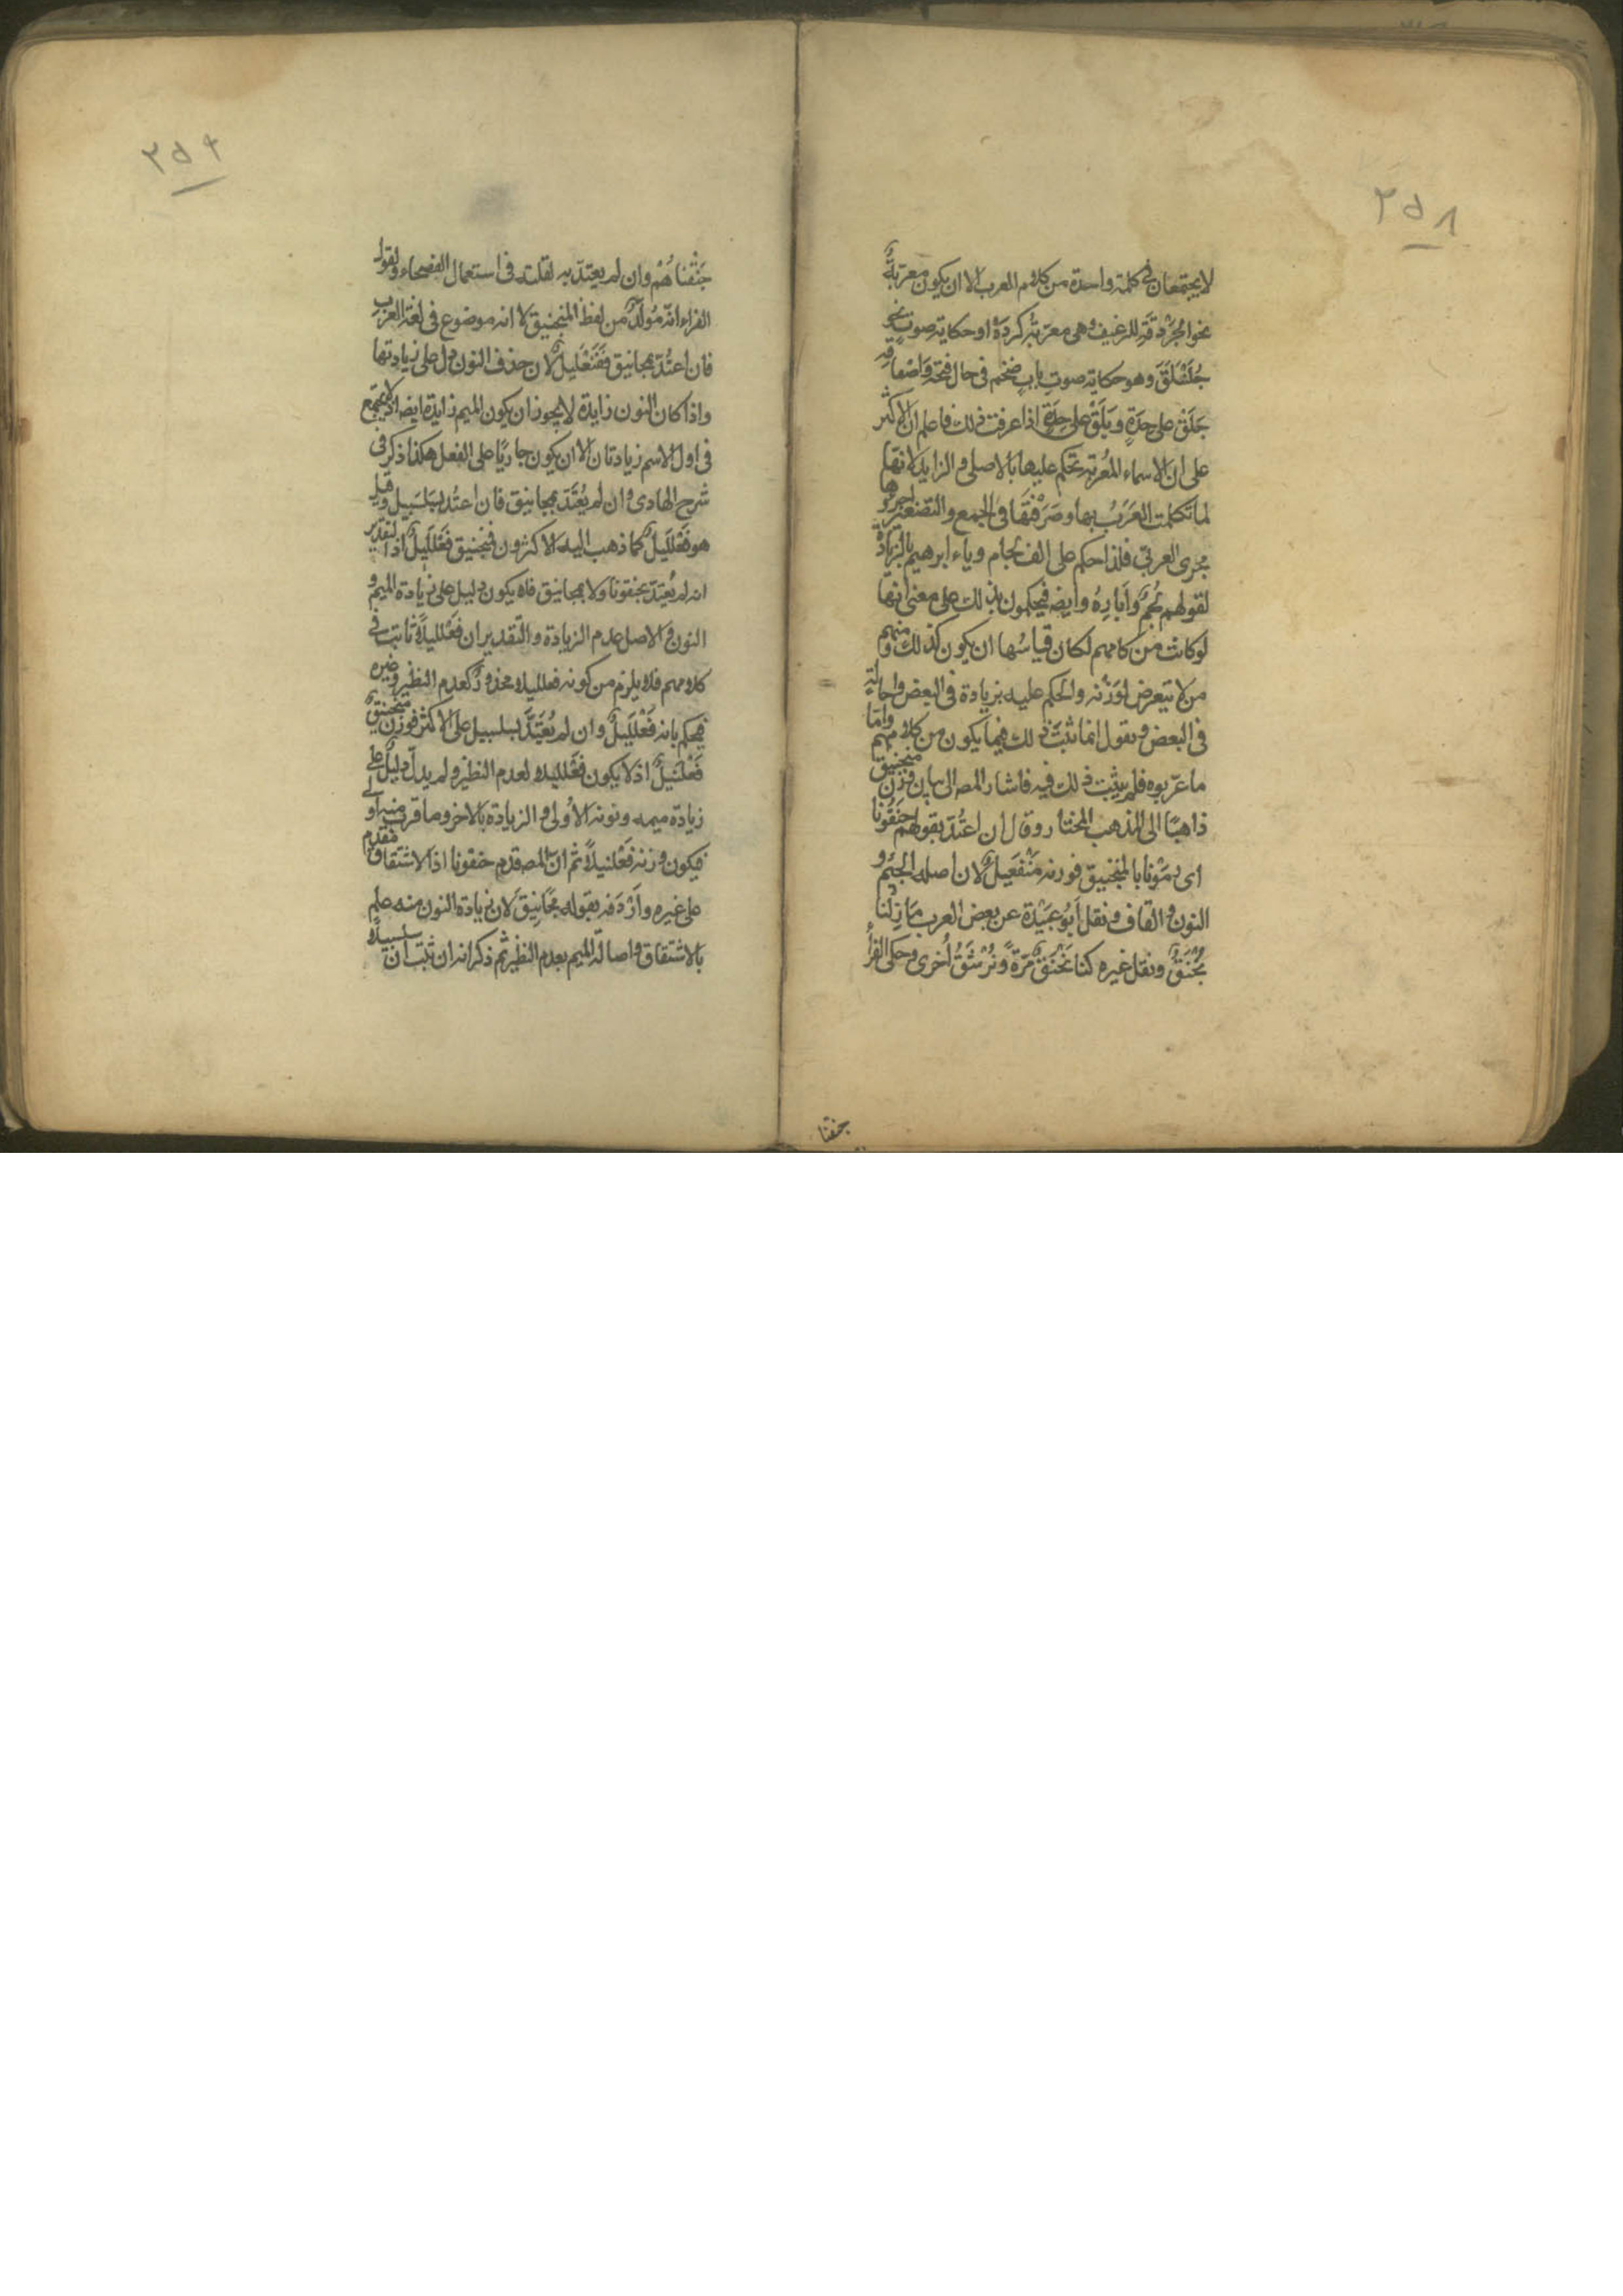 ٢٥٨
لا يجتمعان فى كلمة واحدة من كلام العرب الا ان يكون معربةً
نحو الجَرْدَقَةِ للرغيف وهى معربة كردَة او حكاية صوت نحو
جُلَنْبَلَقَ وهو حكاية صوت باب ضخم فى حال فتحه واصفاقه
جَلَنْ على حِدَةٍ وبَلَقْ على حِدَةٍ اذا عرفت ذلك فاعلم ان الاكثر
على ان الاسماء المُعْربة تحكم عليها بالاصلى والزايد لانها
لما تكلمت العَرَبُ بها وصَرَّفَتْها فى الجمع والتصغير اجروها
مجرى العربى فلذا حكم على الف لجام وياء ابرهيم بالزيادة
لقولهم لُجُمٌ وأَبَارِهُ وايضه فيحكمون بذلك على معنى انها
لوكانت من كلامهم لكان قياسُها ان يكون كذلك ومنهم
من لا تيعرض لوَزْنه والحكم عليه بزيادة فى البعض واصالةٍ
فى البعض ويقول انما ثبتَ ذلك فيما يكون من كلامهم وامّا
ما عرّبوه فلم يثبت ذلك فيه فاشار المصه الى بيان وزن منجنيق
ذاهبًا الى المذهب المختار وقال ان اعتُدّ بقولهم جَنَقُونا
اى رمَوْنا بالمنجنيق فوزنه مَنْفَعِيلٌ لان اصله الجيم و
النون والقاف ونقل اَبُو عُبَيْدة عن بعض العرب مَازِلْنا
نُجْنَقُ ونقل غيره كنا نُجْنَقُ مَرَّةً ونُرْشَقُ اُخرى وحكى الفرأ
جنقنا
٢٥٩
جَنَقْناهُمْ وان لم يعتدّ به لقلته فى استعمال الفصحاء ولقول
الفراء انّه مُولّدٌ من لفظ المنجنيق لا انه موضوع فى لغة العرب
فان اعتُدّ بمجانيق ففَنْعَلِيلٌ لان حذف النون دل على زيادتها
واذا كان النون زايدة لا يجوز ان يكون الميم زايدة ايضه اذ لا يجتمع
فى اول الاسم زيادتان الا ان يكون جاريًا على الفعل هكذا ذكر فى
شرح الهادى وان لم يُعْتَدّ بمجانيق فان اعتُدّ بسَلسَبِيل وقيل
هو فَعْلَلِيلٌ كما ذهب اليه الاكثرون فمنجنيق فَعْلَلِيلٌ اذا لتقدير
انه لم يُعْتدّ بجنقونا ولا بمجانيق فلا يكون دليل على زيادة الميم و
النون والاصل عدم الزيادة والتقدير ان فَعْلَلِيلاً ثابت فى
كلامهم فلا يلزم من كونه فعلليلا محذورٌ كعدم النظير وغيره
فيحكم بانه فَعْلَلِيلٌ وان لم يُعْتَدَّ بسلسبيل على الاكثر فوزن منجنيقٍ
فَعْلَنِيلٌ اذ لا يكون فعلليلا لعدم النظير ولم يدلّ دليلٌ على
زيادة ميمه ونونه الاُولى والزيادة بالاخر وما قرب منه اولى
فيكون وزنه فَعْلَنِيلاً ثم انّ المصه قدم جنقونا اذ الاشتقاق مقدم
على غيره واَرْدَفه بقوله مَجَانِيْق لان زيادة النون منه علم
بالاشتقاق واصالة الميم بعدم النظير ثم ذكر انه ان ثبت ان سلسبيلا